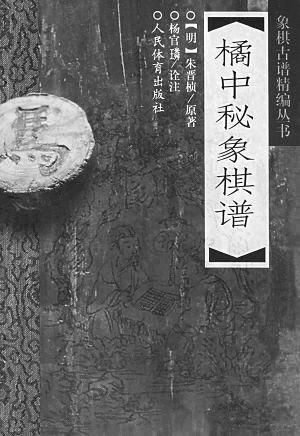 象棋古谱精编丛书
橘中秘象棋谱
【明】朱晋桢/原著
杨官璘/诠注
人民体育出版社
馬